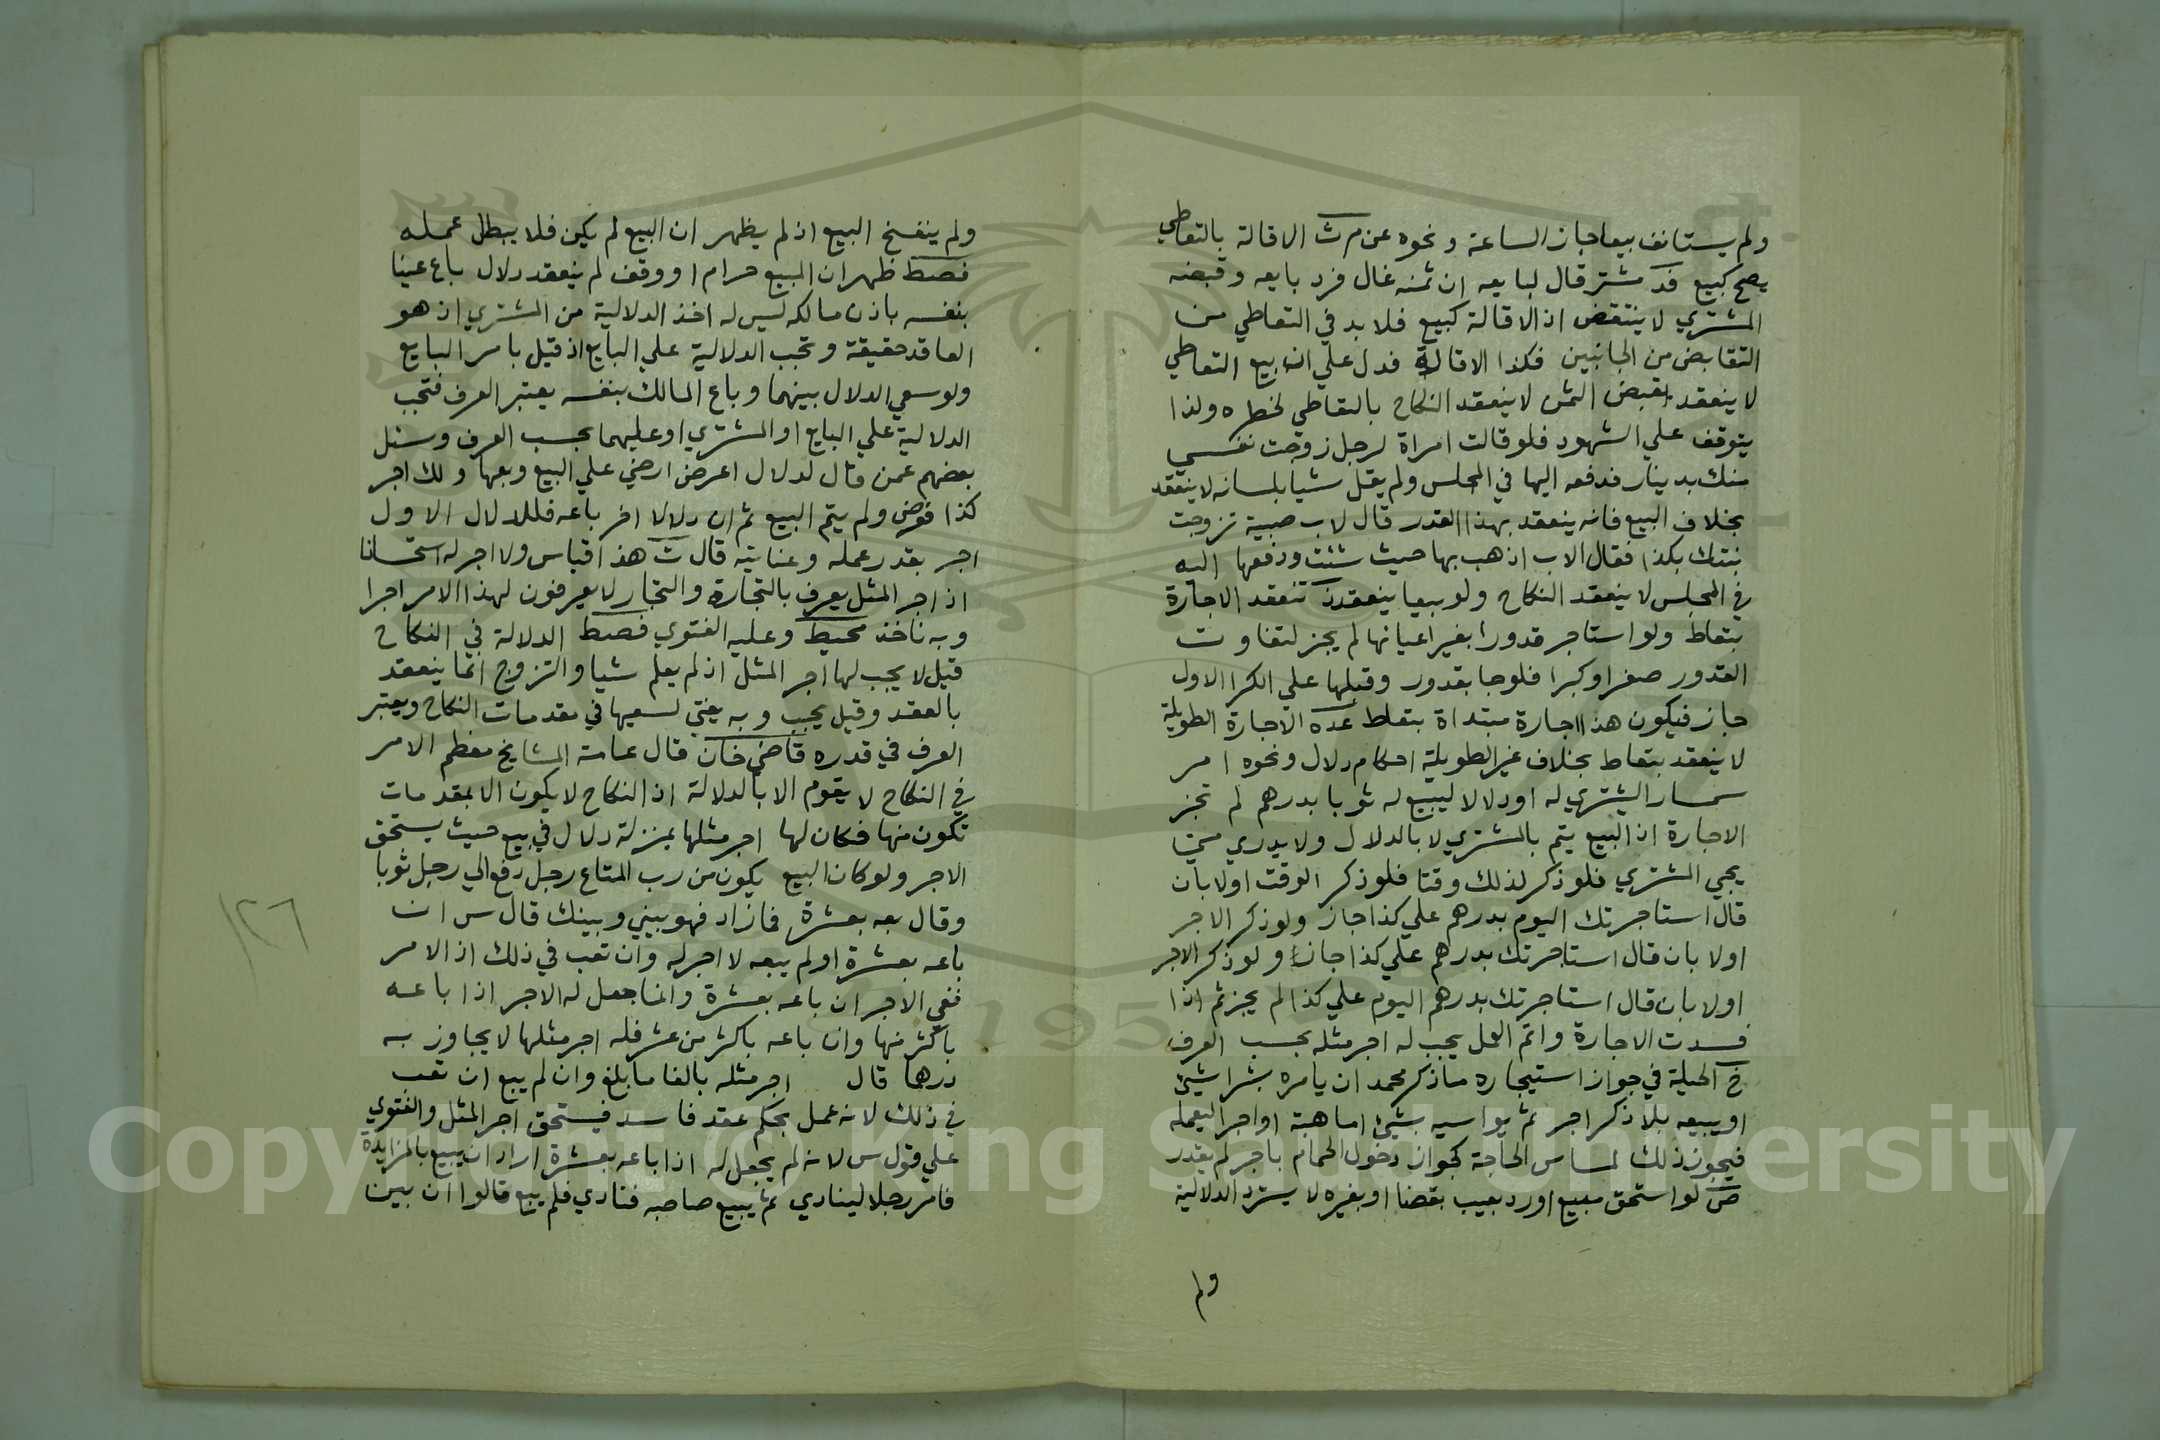 ولم يستانف بيعا جاز الساعة ونحوه عن م ث الاقالة بالتعاطي
يصح كبيع فد مشتر قال لبايعه ان ثمنه غال فرد بايعه وقبضه
المشتري لا ينتقض اذ الاقالة كبيع فلا بد في التعاطي من
التقابض من الجانبين فكذا الاقالة فدل علي ان بيع التعاطي
لا ينعقد بقبض الثمن لا ينعقد النكاح بالتعاطي لخطره ولذا
يتوقف علي الشهود فلو قالت امراة لرجل زوجت نفسي
منك بدينار فدفعه اليها في المجلس ولم يقل شيا بلسانه لا ينعقد
بخلاف البيع فانه ينعقد بهذا القدر قال لاب صبية تزوجت
بنتك بكذا فقال الاب اذهب بها حيث شئت ودفعها اليه
في المجلس لا ينعقد النكاح ولو بيعا ينعقد تنعقد الاجارة
بتعاط ولو استاجر قدورا بغير اعيانها لم يجز لتفاوت
القدور صغرا وكبرا فلو جا بقدور وقبلها علي الكرا الاول
جاز فيكون هذا اجارة مبتداة بتعاط عده الاجارة الطويلة
لا ينعقد بتعاط بخلاف غير الطويلة احكام دلال ونحوه امر
سمسارا ليشتري له او دلالا ليبيع له ثوبا بدرهم لم تجز
الاجارة اذ البيع يتم بالمشتري لا بالدلال ولا يدري متي
يجي المشتري فلو ذكر لذلك وقتا فلو ذكر الوقت اولا بان
قال استاجرتك اليوم بدرهم علي كذا جاز ولو ذكر الاجر
اولا بان قال استاجرتك بدرهم علي كذا جاز ولو ذكر الاجر
اولا بان قال استاجرتك بدرهم اليوم علي كذا لم يجز ثم اذا
فسدت الاجارة واتم العمل يجب له اجر مثله بحسب العرف
خ الحيلة في جواز استيجاره ما ذكر محمد ان يامره بشرا شيئ
او ببيعه بلا ذكر اجر ثم يواسيه بشيئ اما هبة او اجرا لعمله
فيجوز ذلك لمساس الحاجة كجواز دخول الحمام باجر لم يقدر
ص لو استحق مبيع او رد بعيب بقضا او بغيره لا يسترد الدلالية
ولم
ولم ينفسخ البيع اذ لم يظهر ان البيع لم يكن فلا يبطل عمله
فصط ظهر ان المبيع حرام او وقف لم ينعقد دلال باع عينا
بنفسه باذن مالكه ليس له اخذ الدلالية من المشتري اذ هو
العاقد حقيقة وتجب الدلالية علي البايع اذ قبل بامر البايع
ولو سعي الدلال بينهما وباع المالك بنفسه يعتبر العرف فتجب
الدلالية علي البايع او المشتري او عليهما بحسب العرف وسئل
بعضهم عمن قال لدلال اعرض ارضي علي البيع وبعها ولك اجر
كذا فعرض ولم يتم البيع ثم ان دلالا اخر باعه فللدلال الاول
اجر بقدر عمله وعنايته قال ث هذا قياس ولا اجر له استحسانا
اذ اجر المثل يعرف بالتجارة والتجار لا يعرفون لهذا الامر اجرا
وبه ناخذ محيط وعليه الفتوي فصط الدلالة في النكاح
قيل لا يجب لها اجر المثل اذ لم يعلم شيا والتزوج انما ينعقد
بالعقد وقيل يجب وبه يفتي لسعيها في مقدمات النكاح ويعتبر
العرف في قدره قاضي خان قال عامة المشايخ معظم الامر
في النكاح لا يقوم الا بالدلالة اذ النكاح لا يكون الا بمقدمات
تكون منها فكان لها اجر مثلها بمنزلة دلال في بيع حيث يستحق
الاجر ولو كان البيع يكون من رب المتاع رجل دفع الي رجل ثوبا
وقال بعه بعشرة فما زاد فهو بيني وبينك قال س ان
باعه بعشرة او لم يبعه لا اجر له وان تعب في ذلك اذ الامر
نفي الاجر ان باعه بعشرة وانما جعل له الاجر اذا باعه
باكثر منها وان باعه باكثر من عشر فله اجر مثلها لا يجاوز به
درهما قال اجر مثله بالغا ما بلغ وان لم يبع ان تعب
في ذلك لانه عمل بحكم عقد فاسد فيستحق اجر المثل والفتوي
علي قول س لانه لم يجعل له اذا باعه بعشرة اراد ان يبيع بالمزايدة
فامر رجلا لينادي ثم يبيع صاحبه فنادي فلم يبع قالوا ان بين
١٢٦
Copyright © King Saud University
1957